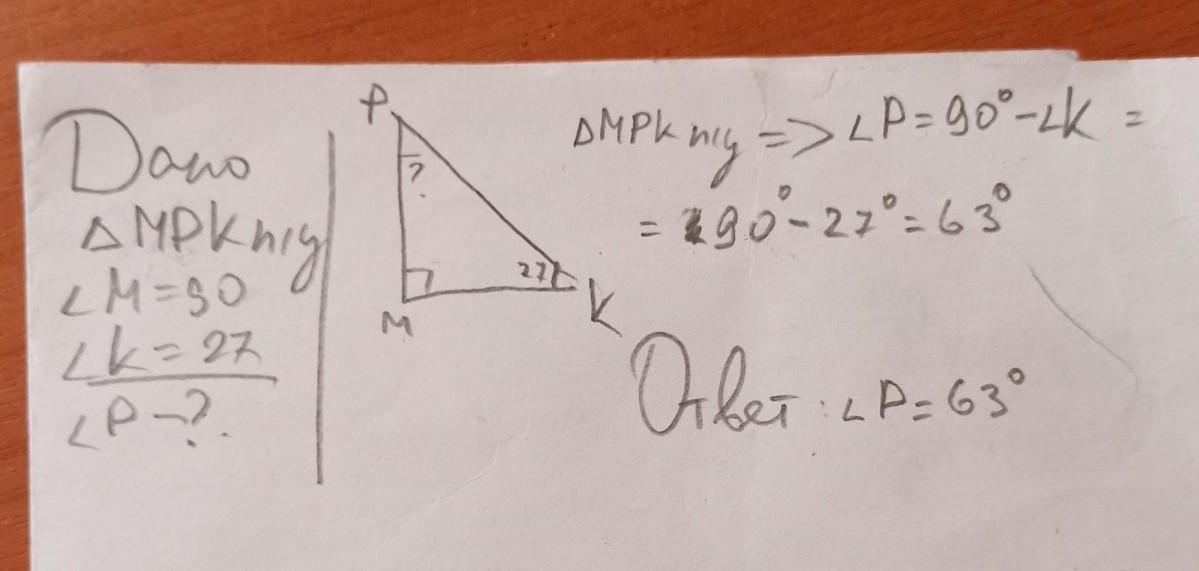 Дано
△MPK п/у
∠M=90
∠K=27
∠P-?
P
?
27
M
K
△MPK п/у => ∠P=90°-∠K =
= 90°-27°=63°
Ответ: ∠P=63°